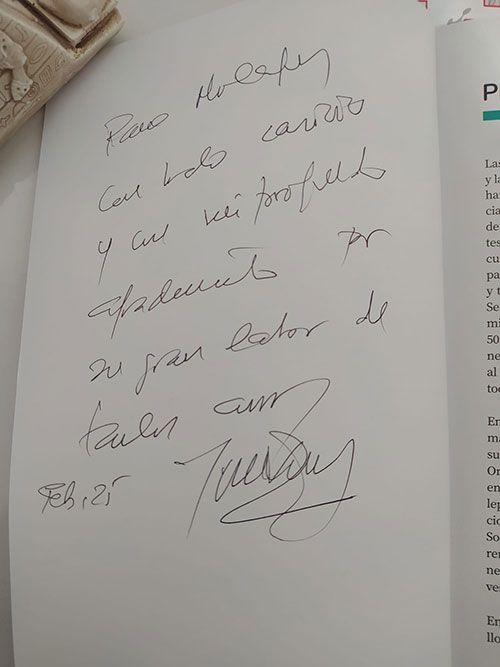 Para
con todo cariño
y con mi profundo
agradecimiento por
su gran labor de
tantos años
Feb, 25
P
Las
y la
ha
cia
de
tes
cu
pa
y t
Se
mi
50
ne
al
too
En
ma
su
Or
en
lep
cio
So
rer
ne
ve
En
llo